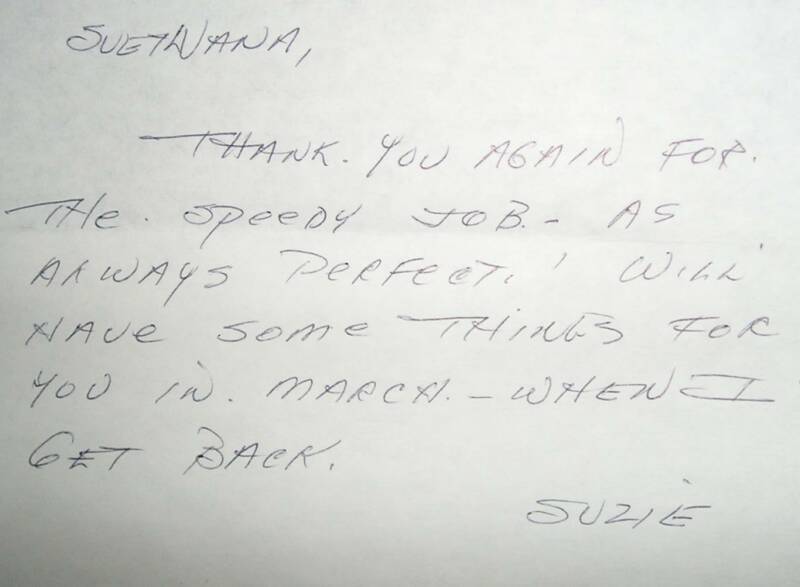 SVETLANA,
THANK. YOU AGAIN FOR.
THe. SPeeDY JOB. - AS
ALWAYS PERFECT. I WILL
HAVe Some THINGS FOR
YOU IN. MARCH. - WHEN I
GET BACK.
SUZIE